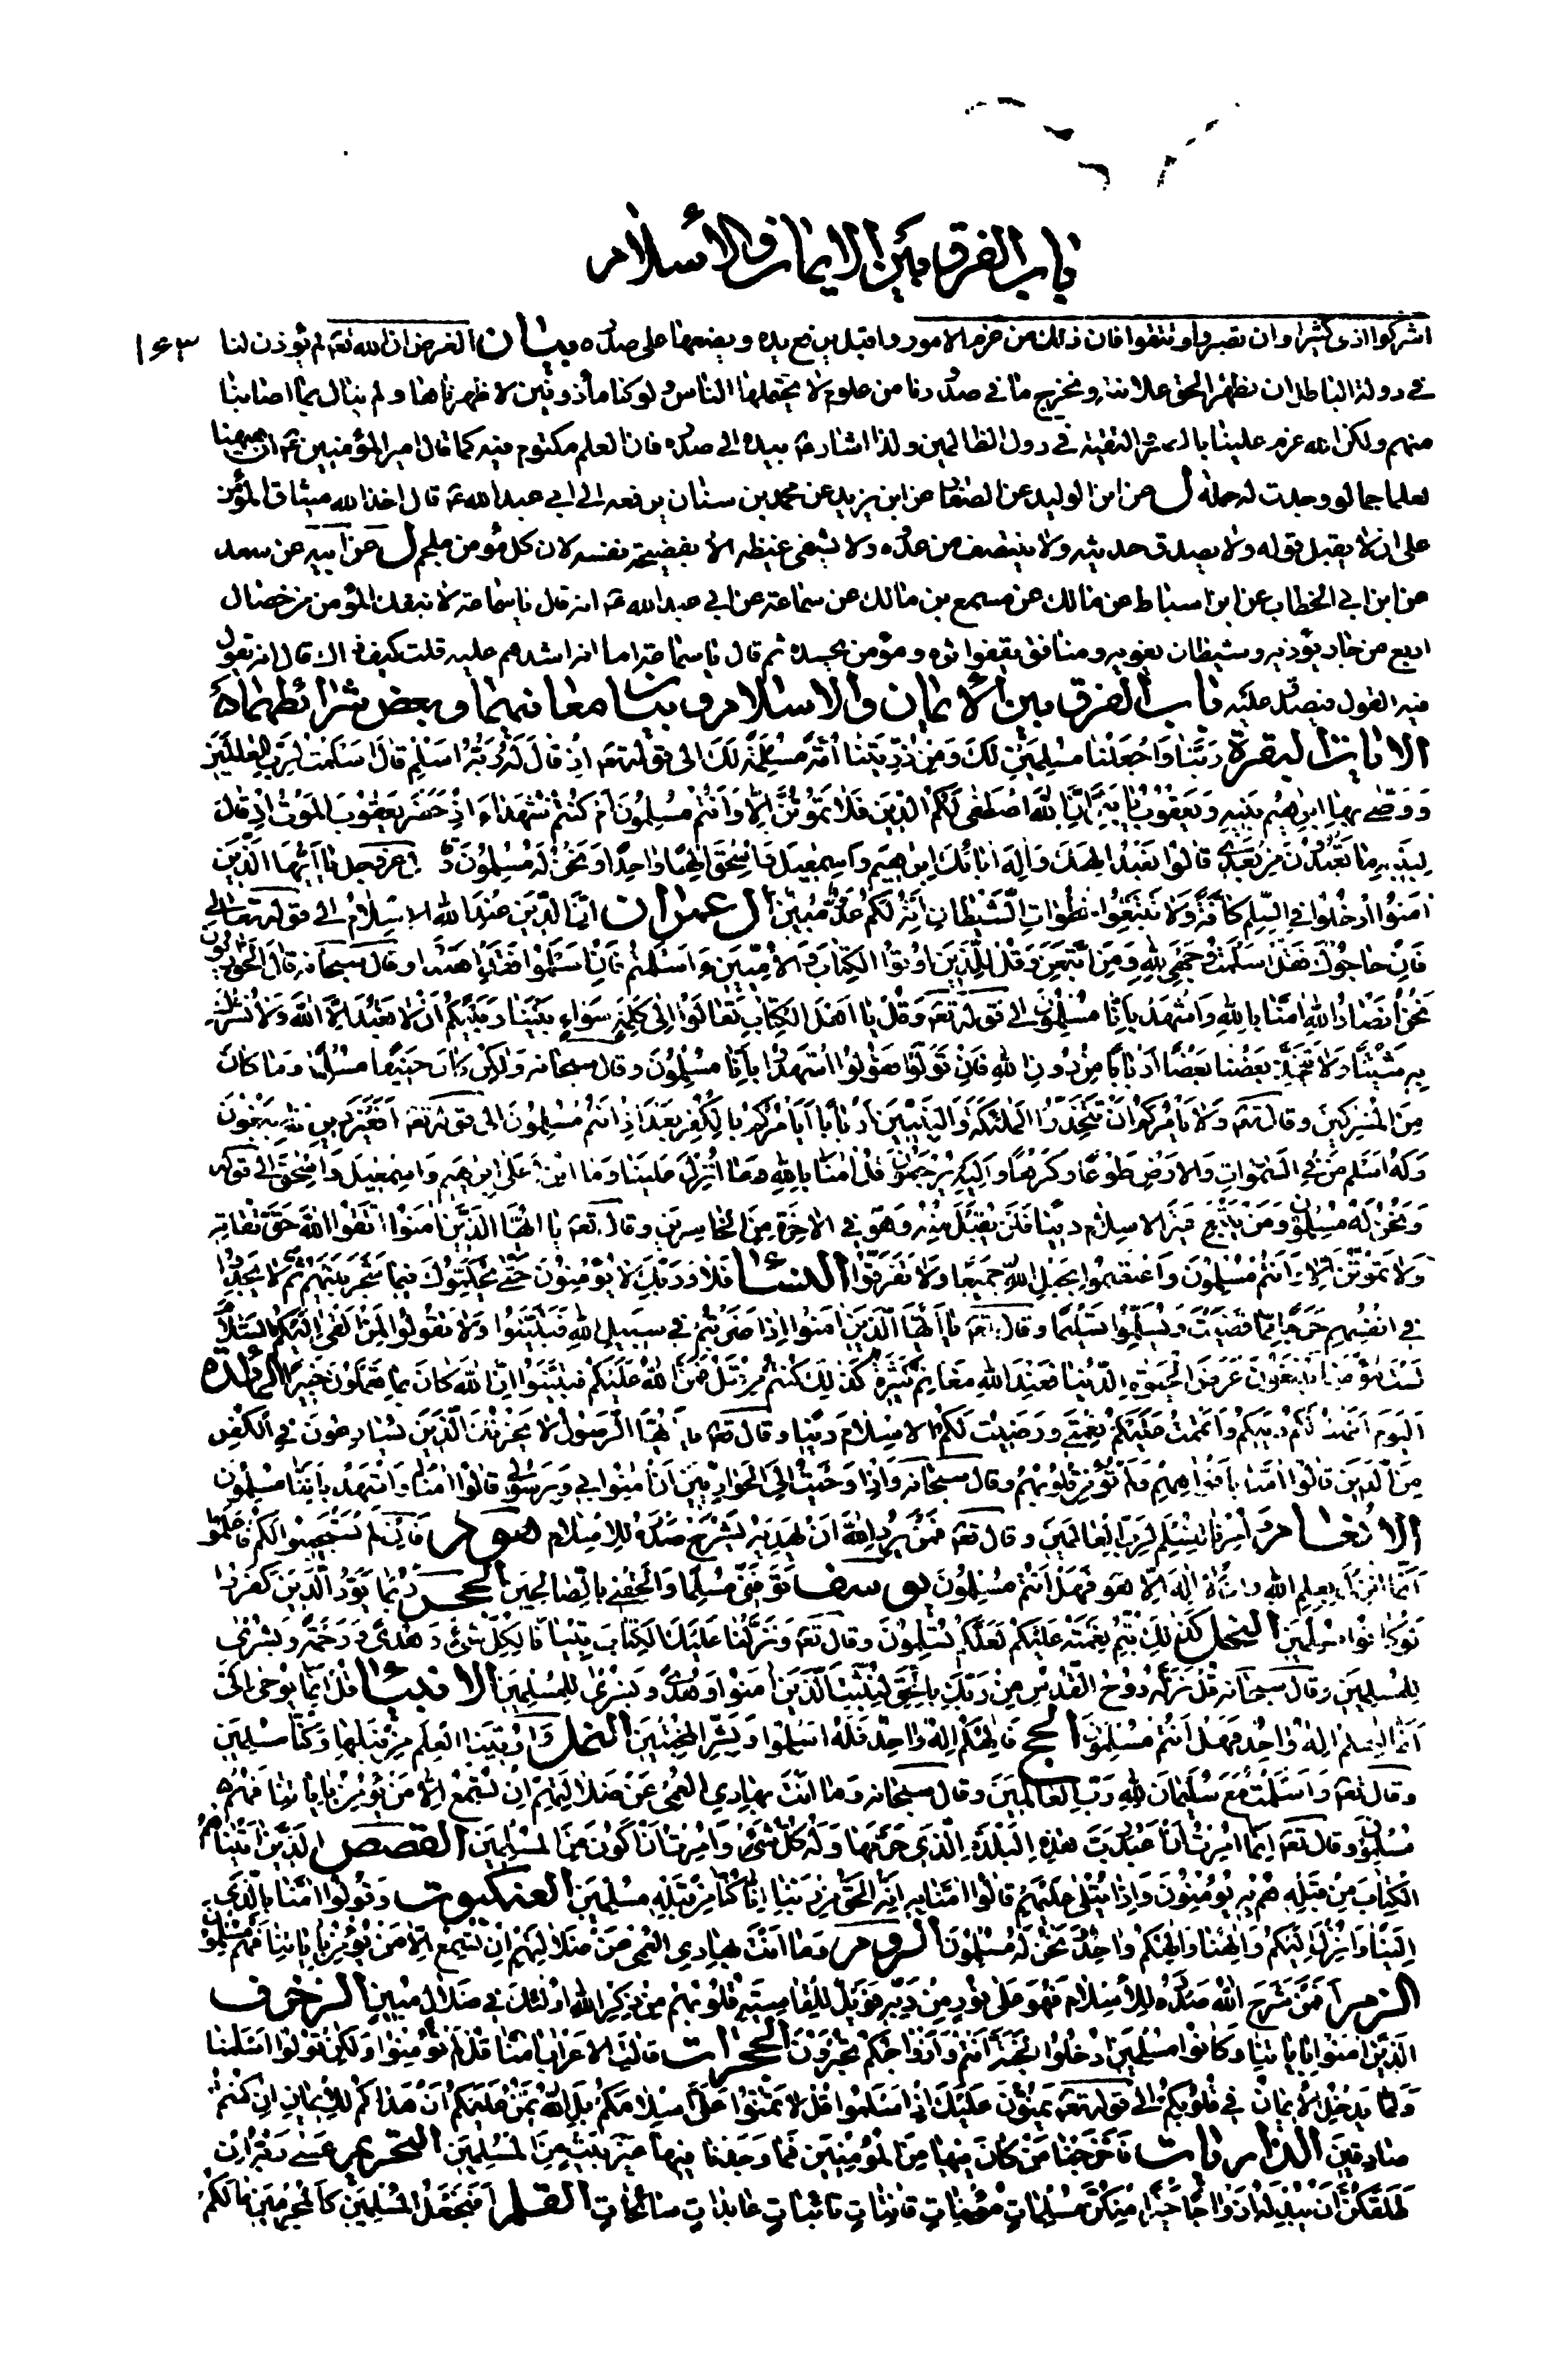 باب الفرق بين الايمان والأسلام
١٦٣
اشركوا اذى كثيرا وان تصبروا وتتقوا فان ذلك من عزم الامور واقبل يرفع يده ويضعها على صدره بيان الغرض ان الله تعه لم يؤذن لنا
في دولة الباطل ان نظهر الحق علانية ونخرج ما في صدورنا من علوم لا يحتملها الناس ولو كنا مأذونين لاظهرناها ولم نبال بما اصابنا
منهم ولكن الله عزم علينا بالصبر والتقية في دول الظالمين ولذا اشار عه بيده الى صدره فان العلم مكتوم فيه كما قال امير المؤمنين عه ان هيهنا
لعلما جما لو وجدت له حملة ل عن ابن الوليد عن الصفار عن ابن يزيد عن محمد بن سنان يرفعه الى ابي عبد الله عه قال اخذ الله ميثاق المؤمن
على ان لا يقبل قوله ولا يصدق حديثه ولا ينتصف من عدوه ولا يشفى غيظه الا بفضيحة نفسه لان كل مؤمن ملجم ل عن ابيه عن سعد
عن ابن ابي الخطاب عن ابن اسباط عن مالك عن مسمع بن مالك عن سماعة عن ابي عبد الله عه انه قال يا سماعة لا ينفك المؤمن من خصال
اربع من جار يؤذيه وشيطان يغويه ومنافق يقفوا ثره ومؤمن يحسده ثم قال يا سماعة اما انه اشدهم عليه قلت كيف ذاك قال انه يقول
فيه القول فيصدق عليه باب الفرق بين الأيمان والاسلام وبيان معانيهما وبعض شرائطهما
الايات البقرة رَبَّنا وَاجْعَلْنا مُسْلِمَيْنِ لَكَ وَمِنْ ذُرِّيَّتِنا اُمَّةً مُسْلِمَةً لَكَ الى قوله تعه اِذْ قالَ لَهُ رَبُّهُ اَسْلِمْ قالَ اَسْلَمْتُ لِرَبِّ الْعالَمينَ
وَوَصّى بِها اِبرهيمُ بَنيهِ وَيَعْقُوبُ يا بَنِيَّ اِنَّ اللهَ اصْطَفى لَكُمُ الدّينَ فَلا تَمُوتُنَّ اِلّا وَاَنْتُمْ مُسْلِمُونَ اَمْ كُنْتُمْ شُهَداءَ اِذْ حَضَرَ يَعْقُوبَ الْمَوْتُ اِذْ قالَ
لِبَنيهِ ما تَعْبُدُونَ مِنْ بَعْدي قالُوا نَعْبُدُ اِلهَكَ وَاِلهَ ابائِكَ اِبْرهيمَ وَاِسمعيلَ وَاِسْحقَ اِلهًا واحِدًا وَنَحْنُ لَهُ مُسْلِمُونَ وقال عز وجل يا اَيُّهَا الَّذينَ
امَنُوا ادْخُلُوا فِي السِّلْمِ كافَّةً وَلا تَتَّبِعُوا خُطُواتِ الشَّيْطانِ اِنَّهُ لَكُمْ عَدُوٌّ مُبينٌ ال عمران اِنَّ الدّينَ عِنْدَ اللهِ الاِسْلامُ الى قوله تعالى
فَاِنْ حاجُّوكَ فَقُلْ اَسْلَمْتُ وَجْهِيَ لِلهِ وَمَنِ اتَّبَعَنِ وَقُلْ لِلَّذينَ اُوتُوا الْكِتابَ وَالاُمِّيّينَ ءَاَسْلَمْتُمْ فَاِنْ اَسْلَمُوا فَقَدِ اهْتَدَوا وقال سبحانه قالَ الْحَوارِيُّونَ
نَحْنُ اَنْصارُ اللهِ امَنّا بِاللهِ وَاشْهَدْ بِاَنّا مُسْلِمُونَ الى قوله تعه قُلْ يا اَهْلَ الْكِتابِ تَعالَوْا اِلى كَلِمَةٍ سَواءٍ بَيْنَنا وَبَيْنَكُمْ اَنْ لا نَعْبُدَ اِلَّا اللهَ وَلا نُشْرِكَ
بِهِ شَيْئًا وَلا يَتَّخِذَ بَعْضُنا بَعْضًا اَرْبابًا مِنْ دُونِ اللهِ فَاِنْ تَوَلَّوْا فَقُولُوا اشْهَدُوا بِاَنّا مُسْلِمُونَ وقال سبحانه وَلكِنْ كانَ حَنيفًا مُسْلِمًا وَما كانَ
مِنَ الْمُشْرِكينَ وقال تعه وَلا يَاْمُرَكُمْ اَنْ تَتَّخِذُوا الْمَلئِكَةَ وَالنَّبِيّينَ اَرْبابًا اَيَاْمُرُكُمْ بِالْكُفْرِ بَعْدَ اِذْ اَنْتُمْ مُسْلِمُونَ الى قوله تعه اَفَغَيْرَ دينِ اللهِ يَبْغُونَ
وَلَهُ اَسْلَمَ مَنْ فِي السَّمواتِ وَالارْضِ طَوْعًا وَكَرْهًا وَاِلَيْهِ يُرْجَعُونَ قُلْ امَنّا بِاللهِ وَما اُنْزِلَ عَلَيْنا وَما اُنْزِلَ عَلى اِبْرهيمَ وَاِسْمعيلَ وَاِسْحقَ الى قوله
وَنَحْنُ لَهُ مُسْلِمُونَ وَمَنْ يَبْتَغِ غَيْرَ الاِسْلامِ دينًا فَلَنْ يُقْبَلَ مِنْهُ وَهُوَ فِي الاخِرَةِ مِنَ الْخاسِرينَ وقال تعه يا اَيُّهَا الَّذينَ امَنُوا اتَّقُوا اللهَ حَقَّ تُقاتِهِ
وَلا تَمُوتُنَّ اِلّا وَاَنْتُمْ مُسْلِمُونَ وَاعْتَصِمُوا بِحَبْلِ اللهِ جَميعًا وَلا تَفَرَّقُوا النساء فَلا وَرَبِّكَ لا يُؤْمِنُونَ حَتّى يُحَكِّمُوكَ فيما شَجَرَ بَيْنَهُمْ ثُمَّ لا يَجِدُوا
في اَنْفُسِهِمْ حَرَجًا مِمّا قَضَيْتَ وَيُسَلِّمُوا تَسْليمًا وقال تعه يا اَيُّهَا الَّذينَ امَنُوا اِذا ضَرَبْتُمْ في سَبيلِ اللهِ فَتَبَيَّنُوا وَلا تَقُولُوا لِمَنْ اَلْقى اِلَيْكُمُ السَّلامَ
لَسْتَ مُؤْمِنًا تَبْتَغُونَ عَرَضَ الْحَيوةِ الدُّنْيا فَعِنْدَ اللهِ مَغانِمُ كَثيرَةٌ كَذلِكَ كُنْتُمْ مِنْ قَبْلُ فَمَنَّ اللهُ عَلَيْكُمْ فَتَبَيَّنُوا اِنَّ اللهَ كانَ بِما تَعْمَلُونَ خَبيرًا المائدة
اَلْيَوْمَ اَكْمَلْتُ لَكُمْ دينَكُمْ وَاَتْمَمْتُ عَلَيْكُمْ نِعْمَتي وَرَضيتُ لَكُمُ الاِسْلامَ دينًا وقال تعه يا اَيُّهَا الرَّسُولُ لا يَحْزُنْكَ الَّذينَ يُسارِعُونَ فِي الْكُفْرِ
مِنَ الَّذينَ قالُوا امَنّا بِاَفْواهِهِمْ وَلَمْ تُؤْمِنْ قُلُوبُهُمْ وقال سبحانه وَاِذْ اَوْحَيْتُ اِلَى الْحَوارِيّينَ اَنْ امِنُوا بي وَبِرَسُولي قالُوا امَنّا وَاشْهَدْ بِاَنَّنا مُسْلِمُونَ
الانعام وَاُمِرْنا لِنُسْلِمَ لِرَبِّ الْعالَمينَ وقال تعه فَمَنْ يُرِدِ اللهُ اَنْ يَهْدِيَهُ يَشْرَحْ صَدْرَهُ لِلاِسْلامِ هود فَاِنْ لَمْ يَسْتَجيبُوا لَكُمْ فَاعْلَمُوا
اَنَّما اُنْزِلَ بِعِلْمِ اللهِ وَاَنْ لا اِلهَ اِلّا هُوَ فَهَلْ اَنْتُمْ مُسْلِمُونَ يوسف تَوَفَّني مُسْلِمًا وَاَلْحِقْني بِالصّالِحينَ الحجر رُبَما يَوَدُّ الَّذينَ كَفَرُوا
لَوْ كانُوا مُسْلِمينَ النحل كَذلِكَ يُتِمُّ نِعْمَتَهُ عَلَيْكُمْ لَعَلَّكُمْ تُسْلِمُونَ وقال تعه وَنَزَّلْنا عَلَيْكَ الْكِتابَ تِبْيانًا لِكُلِّ شَيْءٍ وَهُدًى وَرَحْمَةً وَبُشْرى
لِلْمُسْلِمينَ وقال سبحانه قُلْ نَزَّلَهُ رُوحُ الْقُدُسِ مِنْ رَبِّكَ بِالْحَقِّ لِيُثَبِّتَ الَّذينَ امَنُوا وَهُدًى وَبُشْرى لِلْمُسْلِمينَ الانبياء قُلْ اِنَّما يُوحى اِلَيَّ
اَنَّما اِلهُكُمْ اِلهٌ واحِدٌ فَهَلْ اَنْتُمْ مُسْلِمُونَ الحج فَاِلهُكُمْ اِلهٌ واحِدٌ فَلَهُ اَسْلِمُوا وَبَشِّرِ الْمُخْبِتينَ النمل وَاُوتينَا الْعِلْمَ مِنْ قَبْلِها وَكُنّا مُسْلِمينَ
وقال تعه وَاَسْلَمْتُ مَعَ سُلَيْمانَ لِلهِ رَبِّ الْعالَمينَ وقال سبحانه وَما اَنْتَ بِهادِي الْعُمْيِ عَنْ ضَلالَتِهِمْ اِنْ تُسْمِعُ اِلّا مَنْ يُؤْمِنُ بِاياتِنا فَهُمْ
مُسْلِمُونَ وقال تعه اِنَّما اُمِرْتُ اَنْ اَعْبُدَ رَبَّ هذِهِ الْبَلْدَةِ الَّذي حَرَّمَها وَلَهُ كُلُّ شَيْءٍ وَاُمِرْتُ اَنْ اَكُونَ مِنَ الْمُسْلِمينَ القصص الَّذينَ اتَيْناهُمُ
الْكِتابَ مِنْ قَبْلِهِ هُمْ بِهِ يُؤْمِنُونَ وَاِذا يُتْلى عَلَيْهِمْ قالُوا امَنّا بِهِ اِنَّهُ الْحَقُّ مِنْ رَبِّنا اِنّا كُنّا مِنْ قَبْلِهِ مُسْلِمينَ العنكبوت وَقُولُوا امَنّا بِالَّذي
اُنْزِلَ اِلَيْنا وَاُنْزِلَ اِلَيْكُمْ وَاِلهُنا وَاِلهُكُمْ واحِدٌ وَنَحْنُ لَهُ مُسْلِمُونَ الروم وَما اَنْتَ بِهادِي الْعُمْيِ عَنْ ضَلالَتِهِمْ اِنْ تُسْمِعُ اِلّا مَنْ يُؤْمِنُ بِاياتِنا فَهُمْ مُسْلِمُونَ
الزمر اَفَمَنْ شَرَحَ اللهُ صَدْرَهُ لِلاِسْلامِ فَهُوَ عَلى نُورٍ مِنْ رَبِّهِ فَوَيْلٌ لِلْقاسِيَةِ قُلُوبُهُمْ مِنْ ذِكْرِ اللهِ اُولئِكَ في ضَلالٍ مُبينٍ الزخرف
الَّذينَ امَنُوا بِاياتِنا وَكانُوا مُسْلِمينَ ادْخُلُوا الْجَنَّةَ اَنْتُمْ وَاَزْواجُكُمْ تُحْبَرُونَ الحجرات قالَتِ الاَعْرابُ امَنّا قُلْ لَمْ تُؤْمِنُوا وَلكِنْ قُولُوا اَسْلَمْنا
وَلَمّا يَدْخُلِ الاِيمانُ في قُلُوبِكُمْ الى قوله تعه يَمُنُّونَ عَلَيْكَ اَنْ اَسْلَمُوا قُلْ لا تَمُنُّوا عَلَيَّ اِسْلامَكُمْ بَلِ اللهُ يَمُنُّ عَلَيْكُمْ اَنْ هَداكُمْ لِلاِيمانِ اِنْ كُنْتُمْ
صادِقينَ الذاريات فَاَخْرَجْنا مَنْ كانَ فيها مِنَ الْمُؤْمِنينَ فَما وَجَدْنا فيها غَيْرَ بَيْتٍ مِنَ الْمُسْلِمينَ التحريم عَسى رَبُّهُ اِنْ
طَلَّقَكُنَّ اَنْ يُبْدِلَهُ اَزْواجًا خَيْرًا مِنْكُنَّ مُسْلِماتٍ مُؤْمِناتٍ قانِتاتٍ تائِباتٍ عابِداتٍ سائِحاتٍ القلم اَفَنَجْعَلُ الْمُسْلِمينَ كَالْمُجْرِمينَ ما لَكُمْ